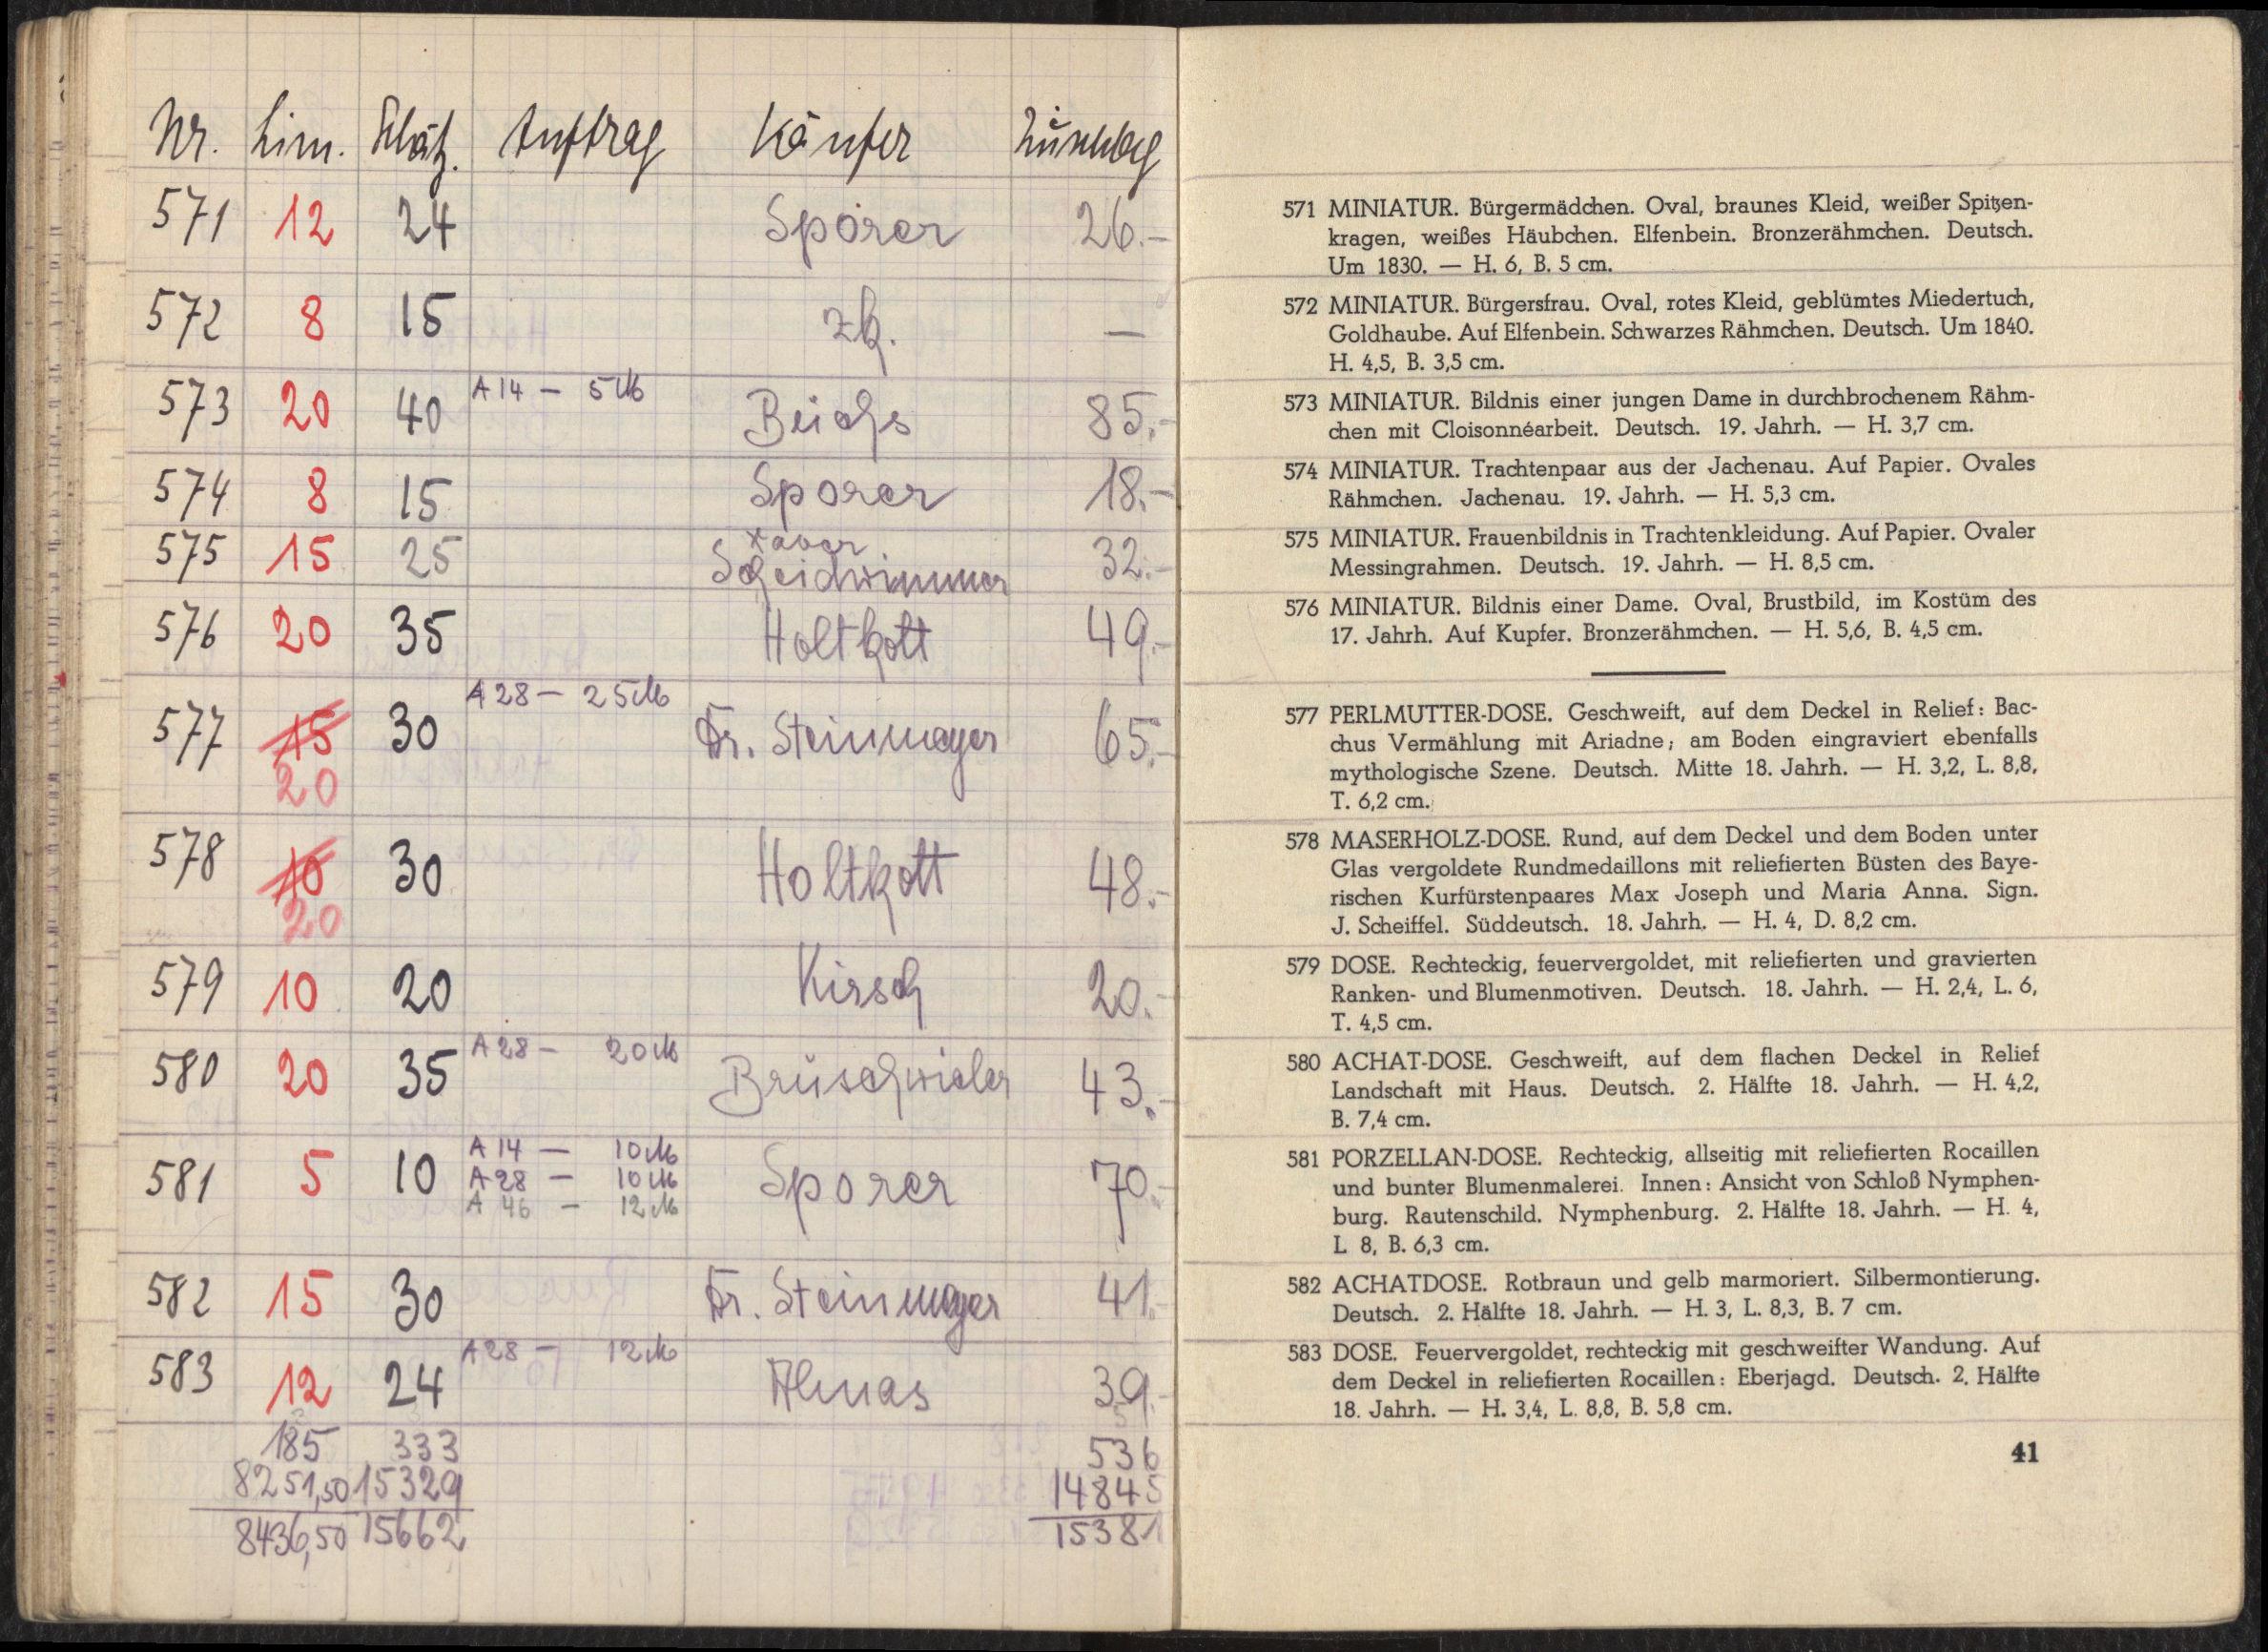 Nr. Lim. Schätz. Auftrag Käufer Zuschlag
571 12 24 Sporer 26.-
572 8 15 zk. —
573 20 40 A 14 - 5 M Beichs 85.-
574 8 15 Sporer 18.-
575 15 25 Xaver Scheidwimmer 32.-
576 20 35 Holtkott 49.-
577 15 20 30 A 28 - 25 M Dr. Steinmeyer 65.-
578 10 20 30 Holtkott 48.-
579 10 20 Kirsch 20.-
580 20 35 A 28 - 20 M Brüschwiler 43.-
581 5 10 A 14 - 10 M Sporer 70.-
A 28 - 10 M
A 46 - 12 M
582 15 30 Dr. Steinmeyer 41.-
583 12 24 A 28 - 12 M Almas 39.-
185 333 536
8251,50 15329 14845
8436,50 15662 15381
571 MINIATUR. Bürgermädchen. Oval, braunes Kleid, weißer Spitzen-
kragen, weißes Häubchen. Elfenbein. Bronzerähmchen. Deutsch.
Um 1830. — H. 6, B. 5 cm.
572 MINIATUR. Bürgersfrau. Oval, rotes Kleid, geblümtes Miedertuch,
Goldhaube. Auf Elfenbein. Schwarzes Rähmchen. Deutsch. Um 1840.
H. 4,5, B. 3,5 cm.
573 MINIATUR. Bildnis einer jungen Dame in durchbrochenem Rähm-
chen mit Cloisonnéarbeit. Deutsch. 19. Jahrh. — H. 3,7 cm.
574 MINIATUR. Trachtenpaar aus der Jachenau. Auf Papier. Ovales
Rähmchen. Jachenau. 19. Jahrh. — H. 5,3 cm.
575 MINIATUR. Frauenbildnis in Trachtenkleidung. Auf Papier. Ovaler
Messingrahmen. Deutsch. 19. Jahrh. — H. 8,5 cm.
576 MINIATUR. Bildnis einer Dame. Oval, Brustbild, im Kostüm des
17. Jahrh. Auf Kupfer. Bronzerähmchen. — H. 5,6, B. 4,5 cm.
577 PERLMUTTER-DOSE. Geschweift, auf dem Deckel in Relief: Bac-
chus Vermählung mit Ariadne; am Boden eingraviert ebenfalls
mythologische Szene. Deutsch. Mitte 18. Jahrh. — H. 3,2, L. 8,8,
T. 6,2 cm.
578 MASERHOLZ-DOSE. Rund, auf dem Deckel und dem Boden unter
Glas vergoldete Rundmedaillons mit reliefierten Büsten des Baye-
rischen Kurfürstenpaares Max Joseph und Maria Anna. Sign.
J. Scheiffel. Süddeutsch. 18. Jahrh. — H. 4, D. 8,2 cm.
579 DOSE. Rechteckig, feuervergoldet, mit reliefierten und gravierten
Ranken- und Blumenmotiven. Deutsch. 18. Jahrh. — H. 2,4, L. 6,
T. 4,5 cm.
580 ACHAT-DOSE. Geschweift, auf dem flachen Deckel in Relief
Landschaft mit Haus. Deutsch. 2. Hälfte 18. Jahrh. — H. 4,2,
B. 7,4 cm.
581 PORZELLAN-DOSE. Rechteckig, allseitig mit reliefierten Rocaillen
und bunter Blumenmalerei. Innen: Ansicht von Schloß Nymphen-
burg. Rautenschild. Nymphenburg. 2. Hälfte 18. Jahrh. — H. 4,
L 8, B. 6,3 cm.
582 ACHATDOSE. Rotbraun und gelb marmoriert. Silbermontierung.
Deutsch. 2. Hälfte 18. Jahrh. — H. 3, L. 8,3, B. 7 cm.
583 DOSE. Feuervergoldet, rechteckig mit geschweifter Wandung. Auf
dem Deckel in reliefierten Rocaillen: Eberjagd. Deutsch. 2. Hälfte
18. Jahrh. — H. 3,4, L. 8,8, B. 5,8 cm.
41